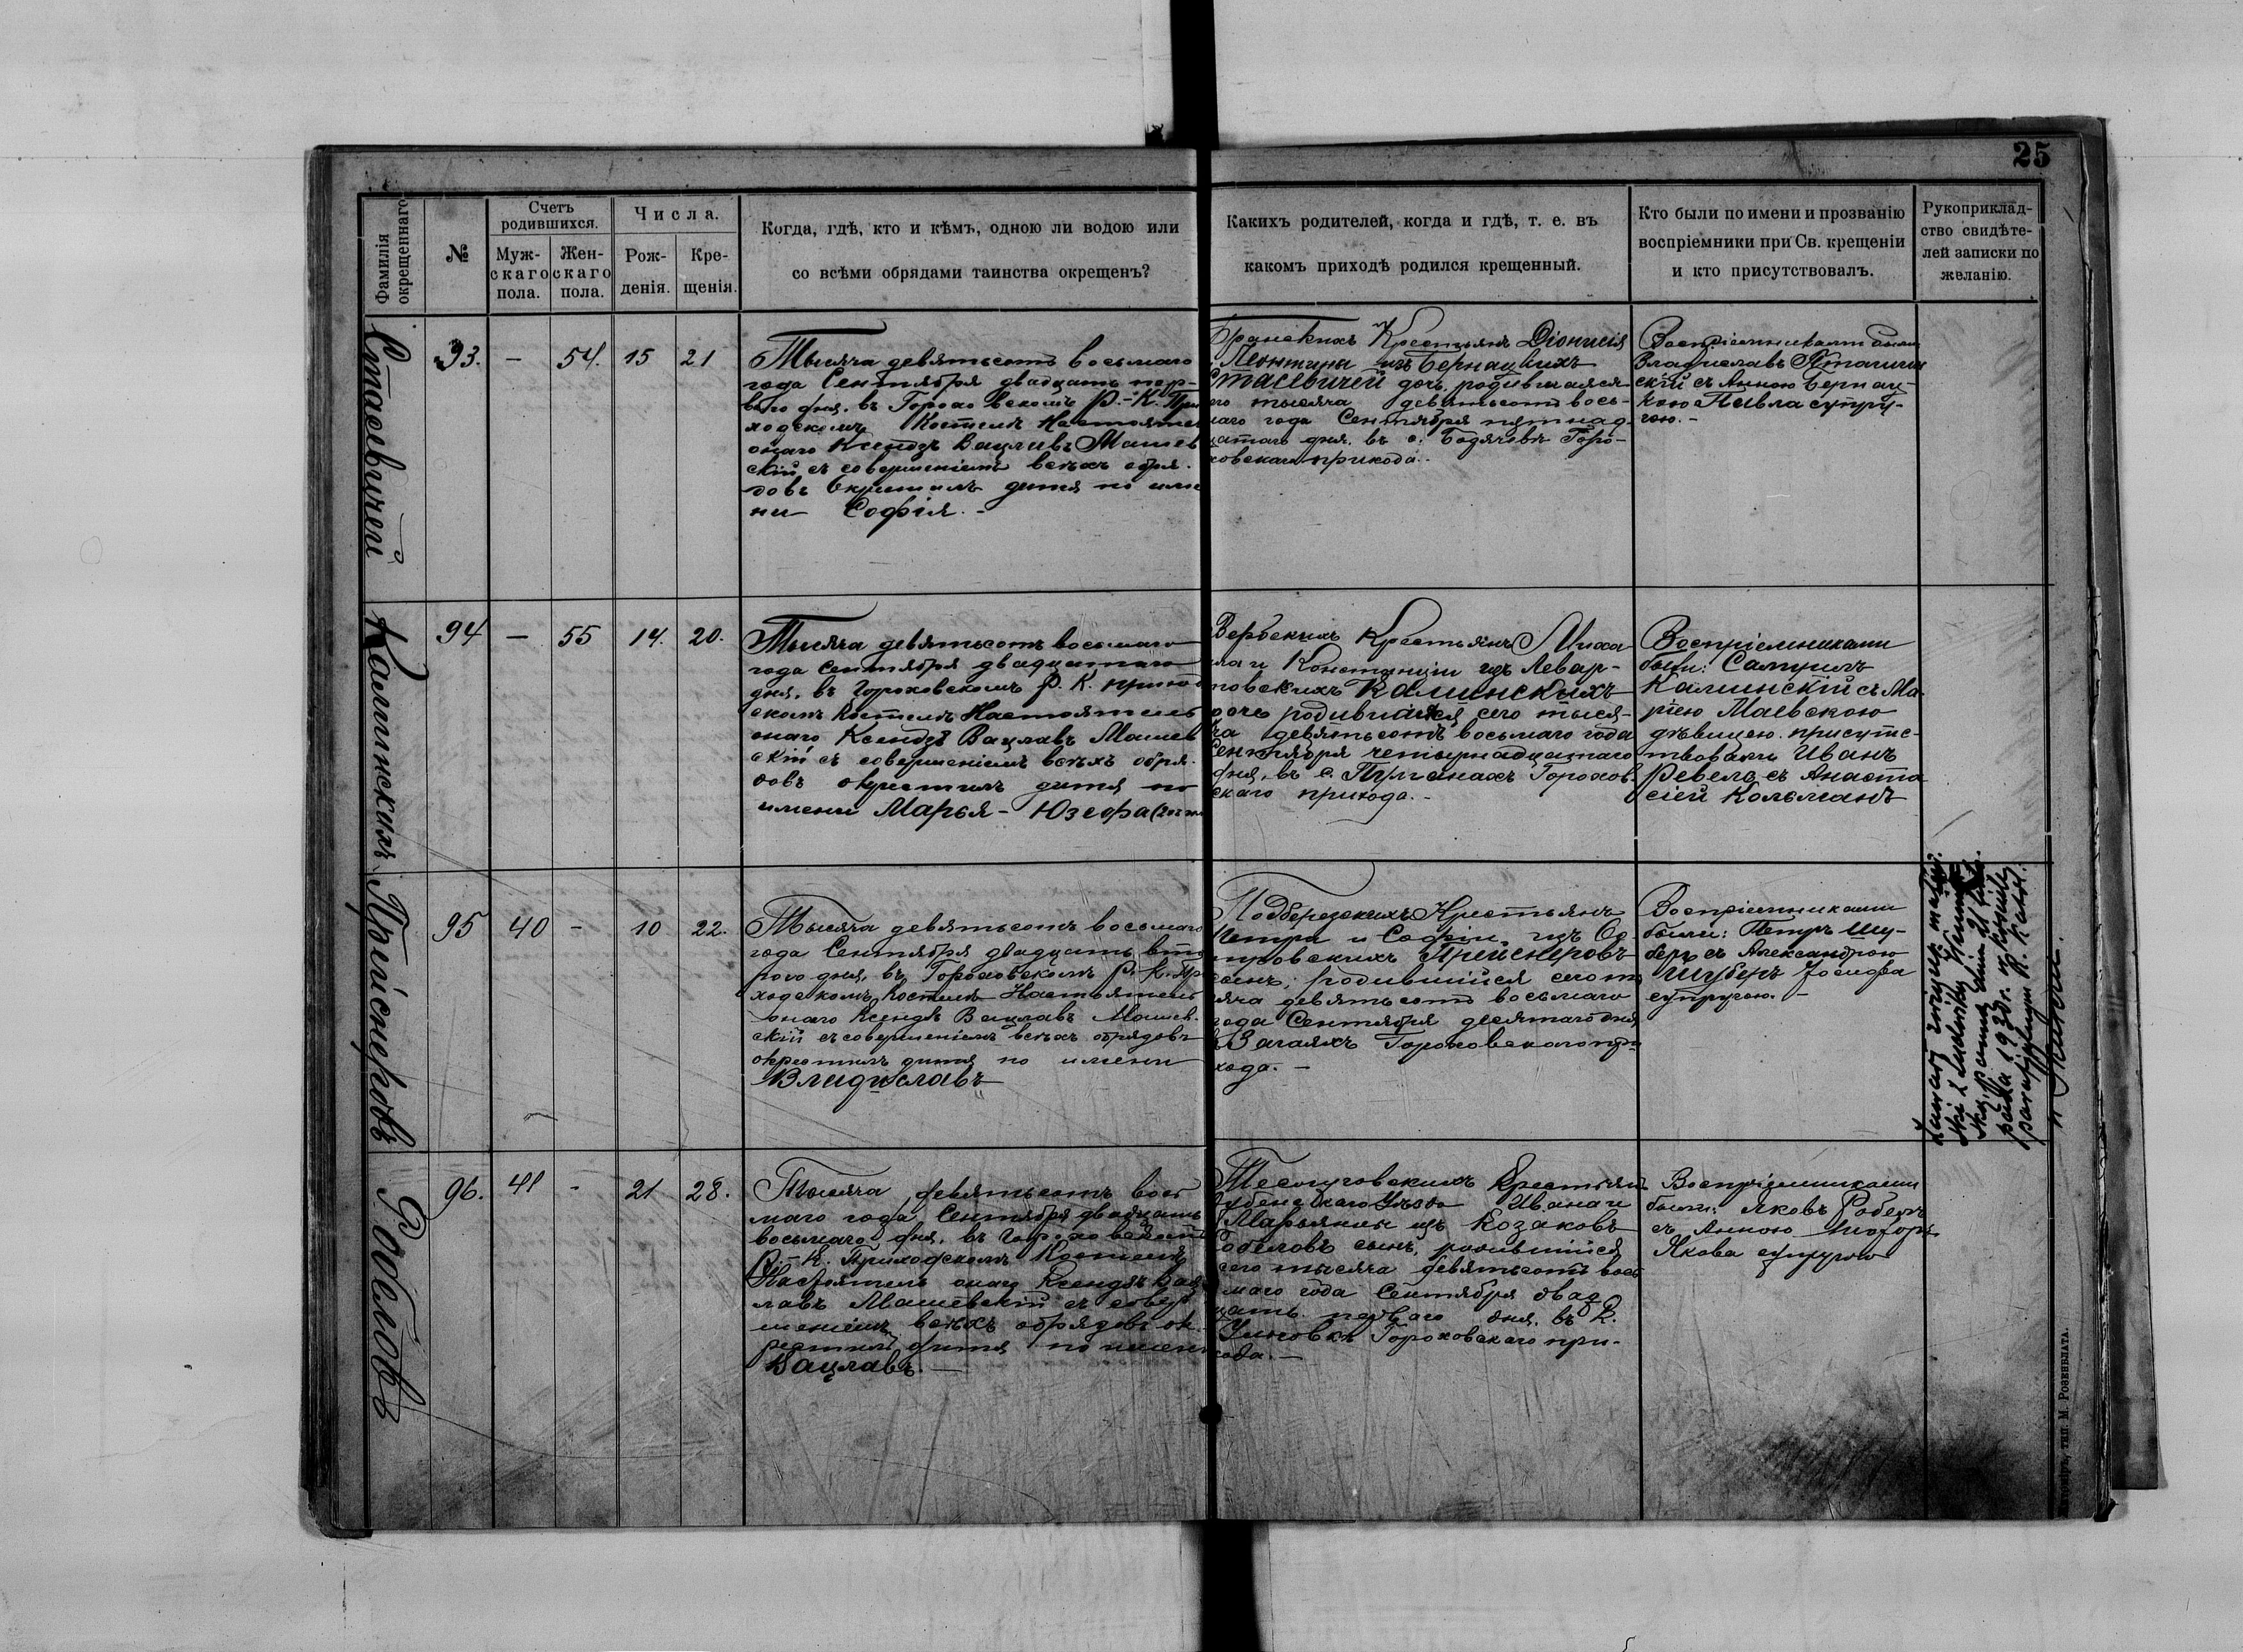 25
Фамилія окрещеннаго
№
Счетъ родившихся.
Муж-
скаго
пола.
Жен-
скаго
пола.
Числа.
Рож-
денія.
Кре-
щенія.
Когда, гдѣ, кто и кѣмъ, одною ли водою или
со всѣми обрядами таинства окрещенъ?
Какихъ родителей, когда и гдѣ, т. е. въ
какомъ приходѣ родился крещенный.
Кто были по имени и прозванію
воспріемники при Св. крещеніи
и кто присутствовалъ.
Рукоприклад-
ство свидѣте-
лей записки по
желанію.
Стасевичей
93. — 54. 15 21
Тысяча девятьсотъ восьмаго
года Сентября двадцать пер-
ваго дня, въ Горохо вскомъ Р.-К. При
ходскомъ Костелѣ Настояте
онаго Ксендзъ Вацлавъ Машев
скій съ совершеніемъ всѣхъ обря-
довъ окрестилъ дитя по име
ни София. -
Крестьянъ Діонисія
Леонтины изъ Бернацкихъ
Стасевичей дочь, родившаяся
его тысяча девятьсотъ вось-
маго года Сентября пятнад-
цатаго дня, въ с. Бодячевѣ Горо-
ховскаго прихода. -
Воспріемниками были
Владиславъ
скій съ Анною Бернац-
кою Павла супру-
гою. -
Калинскихъ
94 — 55 14. 20.
Тысяча девятьсотъ восьмаго
года Сентября двадцатаго
дня, въ Гороховскомъ Р. К. приход
скомъ Костелѣ Настоятель
онаго Ксендзъ Вацлавъ Машев
скій съ совершеніемъ всѣхъ обря-
довъ окрестилъ дитя по
имени Марья - Юзефа
Вербскихъ Крестьянъ Миха
ила и Констанціи изъ Левар-
товскихъ Калинскихъ
дочь родившаяся сего тыся-
ча девятьсотъ восьмаго года
Сентября четырнадцатаго
дня, въ с. Горохов-
скаго прихода. -
Воспріемниками
были: Самуилъ
Калинскій съ Ма-
ріею Маевскою
дѣвицею. присутс-
твовали Иванъ
Ревелъ съ Анаста
сіей Кольманъ
Прейснеровъ
95 40 - 10 22.
Тысяча девятьсотъ восьмаго
года Сентября двадцать вто
рого дня, въ Гороховскомъ Р. К. При
ходскомъ Костелѣ Настоятель
онаго Ксендзъ Вацлавъ Машев-
скій съ совершеніемъ всѣхъ обрядовъ
окрестилъ дитя по имени
Владиславъ
Подберезскихъ Крестьянъ
Петра и Софіи, изъ
Прейснеровъ
сынъ, родившійся сего ты
сяча девятьсотъ восьмаго
года Сентября десятаго дня
въ Загаяхъ Гороховскаго при
хода. -
Воспріемниками
были: Петръ Шу-
беръ съ Александрою
Шуберъ Іосифа
супругою. -
Робеловъ
96. 41 - 21 28.
Тысяча девятьсотъ вось
маго года Сентября двадцать
восьмаго дня, въ Гороховскомъ
Р.-К. Приходскомъ Костелѣ
Настоятель онаго Ксендзъ Вац
лавъ Машевскій съ совер
шеніемъ всѣхъ обрядовъ ок-
рестилъ дитя по имени
Вацлавъ. —
Теслуговскихъ Крестьян
Дубенскаго Уѣзда Ивана и
Марьянны изъ Козаковъ
Робеловъ сынъ, родившійся
сего тысяча девятьсотъ вось
маго года Сентября двад
цать перваго дня, въ К.
Гороховскаго при-
хода. —
Воспріемниками
были: Яковъ
съ Анною
Якова супругою
тип. М. Розенблата.